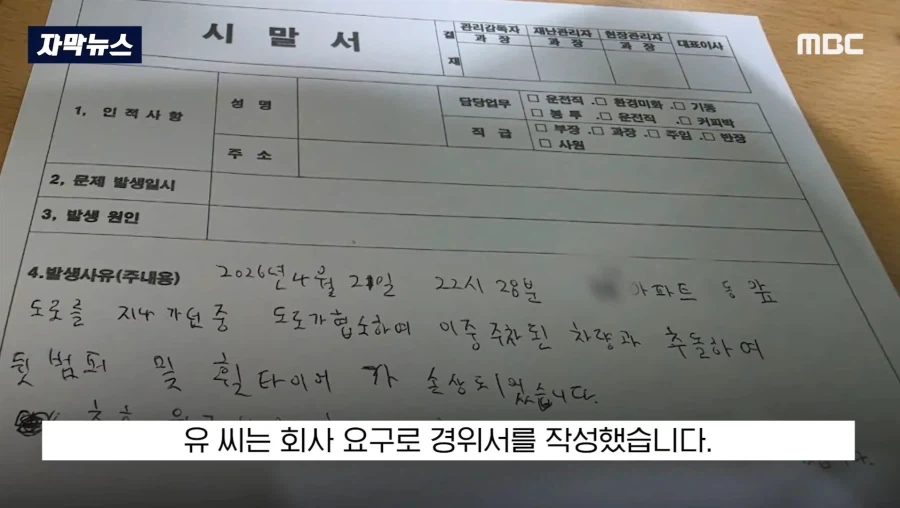 자막뉴스
MBC
시 말 서
결
재
관리감독자
과 장
재난관리자
과 장
현장관리자
과 장
대표이사
1, 인 적 사 항
성 명
담당업무
□ 운전직 .□ 환경미화 .□ 기동
□ 봉 투 .□ 운전직 .□ 커피박
직 급
□ 부장 .□ 과장 .□ 주임 .□ 반장
□ 사원
주 소
2, 문제 발생일시
3, 발생 원인
4.발생사유(주내용) 2026년 4월 21일 22시 28분 아파트 동 앞
도로를 지나 가던 중 도로가 협소하여 이중 주차된 차량과 추돌하여
뒷 범퍼 및 휠타이어 가 손상되었습니다.
유 씨는 회사 요구로 경위서를 작성했습니다.